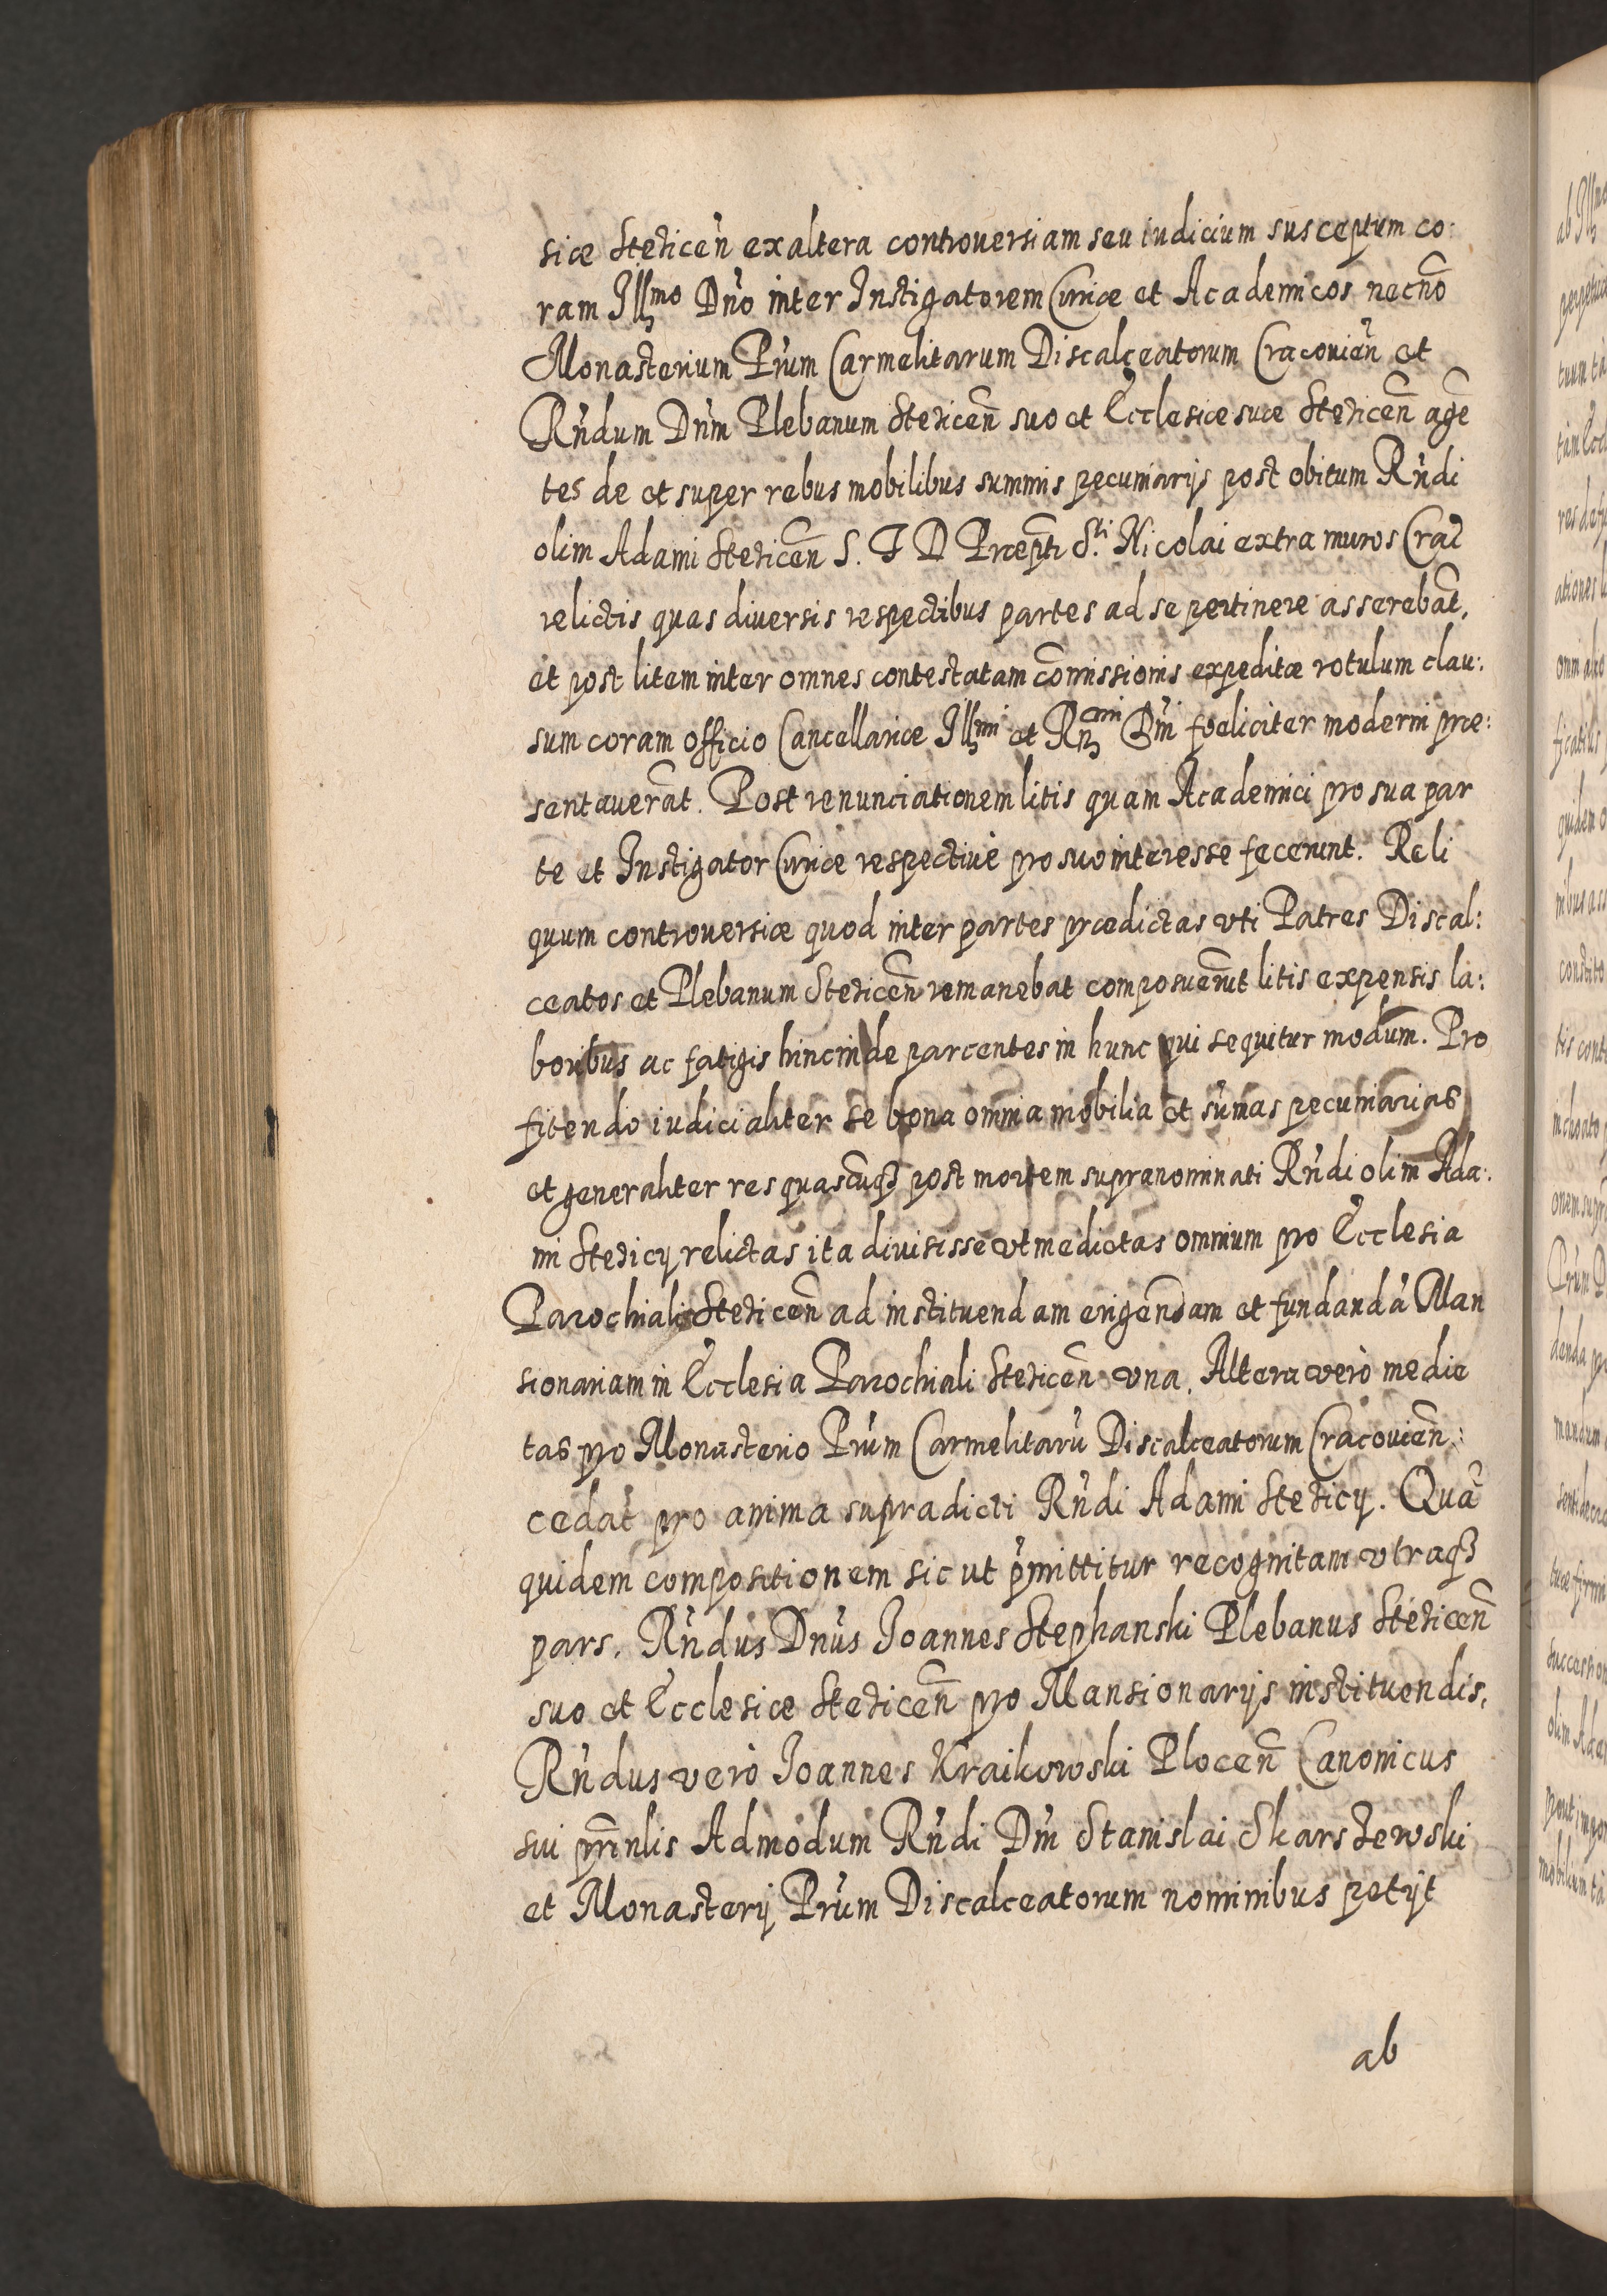 siæ Stezicen̄ ex altera controuersiam seu iudicium susceptum co:
ram Illmo Dn̄o inter Instigatorem Curiæ et Academicos necnō
Monasterium Pr̄um Carmelitarum Discalceatorum Cracouien̄ et
Rn̄dum Dn̄m Plebanum Stezicen̄ suo et Ecclesiæ suæ Stezicen̄ agē
tes de et super rebus mobilibus summis pecuniarijs post obitum Rn̄di
olim Adami Stezicen̄ S. T D Præpti Sti Nicolai extra muros Crac̄
relictis quas diuersis respectibus partes ad se pertinere asserebāt,
et post litem inter omnes contestatam com̄issionis expeditæ rotulum clau:
sum coram officio Cancellariæ Illmi et Rn̄mi Dn̄i foeliciter moderni præ:
sentauerāt. Post renunciationem litis quam Academici pro sua par
te et Instigator Curiæ respectiuè pro suo interesse fecerunt. Reli
quum controuersiæ quod inter partes prædictas vti Patres Discal:
ceatos et Plebanum Stezicen̄ remanebat composuerūt litis expensis la:
boribus ac fatigis hincinde parcentes in hunc qui sequitur modum. Pro
fitendo iudicialiter se bona omnia mobilia et sum̄as pecuniarias
et generaliter res quascūqȝ post mortem supranominati Rn̄di olim Ada:
mi Stezicy relictas ita diuisisse vt medietas omnium pro Ecclesia
Parochiali Stezicen̄ ad instituendam erigendam et fundandā Man
sionariam in Ecclesia Parochiali Stezicen̄ vna. Altera verò medie
tas pro Monasterio Pr̄um Carmelitarū Discalceatorum Cracouien̄:
cedat pro anima supradicti Rn̄di Adami Stezicy. Quā
quidem compositionem sic ut p̄mittitur recognitam vtraqȝ
pars. Rn̄dus Dn̄us Joannes Stephanski Plebanus Stezicen̄
suo et Ecclesiæ Stezicen̄ pro Mansionarijs instituendis,
Rn̄dus verò Joannes Kraikowski Plocen̄ Canonicus
sui prin̄lis Admodum Rn̄di Dn̄i Stanislai Skarszewski
et Monasterij Pr̄um Discalceatorum nominibus petijt
ab